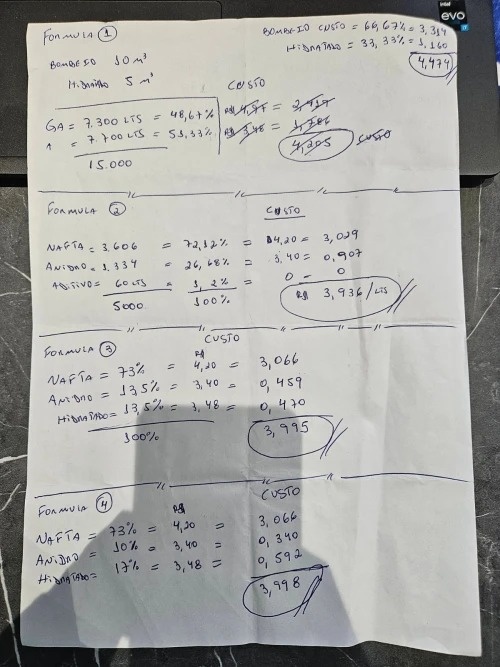 intel
evo
FORMULA 1
BOMBEIO CUSTO = 66,67% = 3,314
HIDRATADO = 33,33% = 1,160
4,474
BOMBEIO 10 m³
HIDRATADO 5 m³
CUSTO
GA = 7.300 LTS = 48,67% R$ 4,97 = 2,417
A = 7.700 LTS = 51,33% R$ 3,48 = 1,786
15.000 4,205 CUSTO
FORMULA 2
CUSTO
NAFTA = 3.606 = 72,12% = 4,20 = 3,029
ANIDRO = 1.334 = 26,68% = 3,40 = 0,907
ADITIVO = 60 LTS = 1,2% = 0 = 0
5000 100% R$ 3,936/LTS
FORMULA 3
CUSTO
R$
NAFTA = 73% = 4,20 = 3,066
ANIDRO = 13,5% = 3,40 = 0,459
HIDRATADO = 13,5% = 3,48 = 0,470
100% 3,995
FORMULA 4
R$ CUSTO
NAFTA = 73% = 4,20 = 3,066
ANIDRO = 10% = 3,40 = 0,340
HIDRATADO = 17% = 3,48 = 0,592
3,998